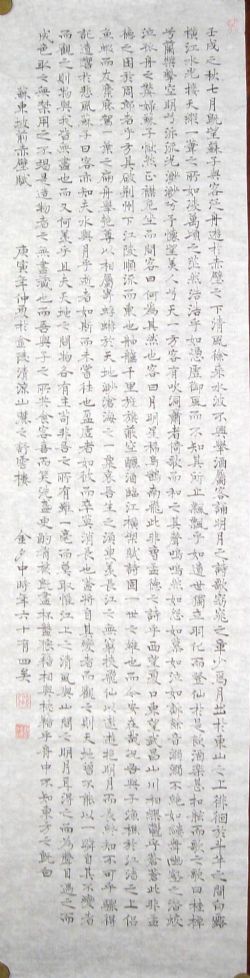 壬戌之秋七月既望蘇子與客泛舟遊於赤壁之下清風徐來水波不興舉酒屬客誦明月之詩歌窈窕之章少焉月出於東山之上徘徊於斗牛之間白露
橫江水光接天縱一葦之所如凌萬頃之茫然浩浩乎如憑虛御風而不知其所止飄飄乎如遺世獨立羽化而登仙於是飲酒樂甚扣舷而歌之歌曰桂棹
兮蘭槳擊空明兮泝流光渺渺兮予懷望美人兮天一方客有吹洞簫者倚歌而和之其聲嗚嗚然如怨如慕如泣如訴餘音嫋嫋不絕如縷舞幽壑之潛蛟
泣孤舟之嫠婦蘇子愀然正襟危坐而問客曰何為其然也客曰月明星稀烏鵲南飛此非曹孟德之詩乎西望夏口東望武昌山川相繆鬱乎蒼蒼此非孟
德之困於周郎者乎方其破荊州下江陵順流而東也舳艫千里旌旗蔽空釃酒臨江橫槊賦詩固一世之雄也而今安在哉況吾與子漁樵於江渚之上侶
魚蝦而友麋鹿駕一葉之扁舟舉匏樽以相屬寄蜉蝣於天地渺滄海之一粟哀吾生之須臾羨長江之無窮挾飛仙以遨遊抱明月而長終知不可乎驟得
託遺響於悲風蘇子曰客亦知夫水與月乎逝者如斯而未嘗往也盈虛者如彼而卒莫消長也蓋將自其變者而觀之則天地曾不能以一瞬自其不變者
而觀之則物與我皆無盡也而又何羨乎且夫天地之間物各有主苟非吾之所有雖一毫而莫取惟江上之清風與山間之明月耳得之而為聲目遇之而
成色取之無禁用之不竭是造物者之無盡藏也而吾與子之所共食客喜而笑洗盞更酌肴核既盡杯盤狼藉相與枕藉乎舟中不知東方之既白
蘇東坡前赤壁賦 庚寅年仲夏於金陵清涼山麓之聽雪樓 金夕中時年六十有四矣